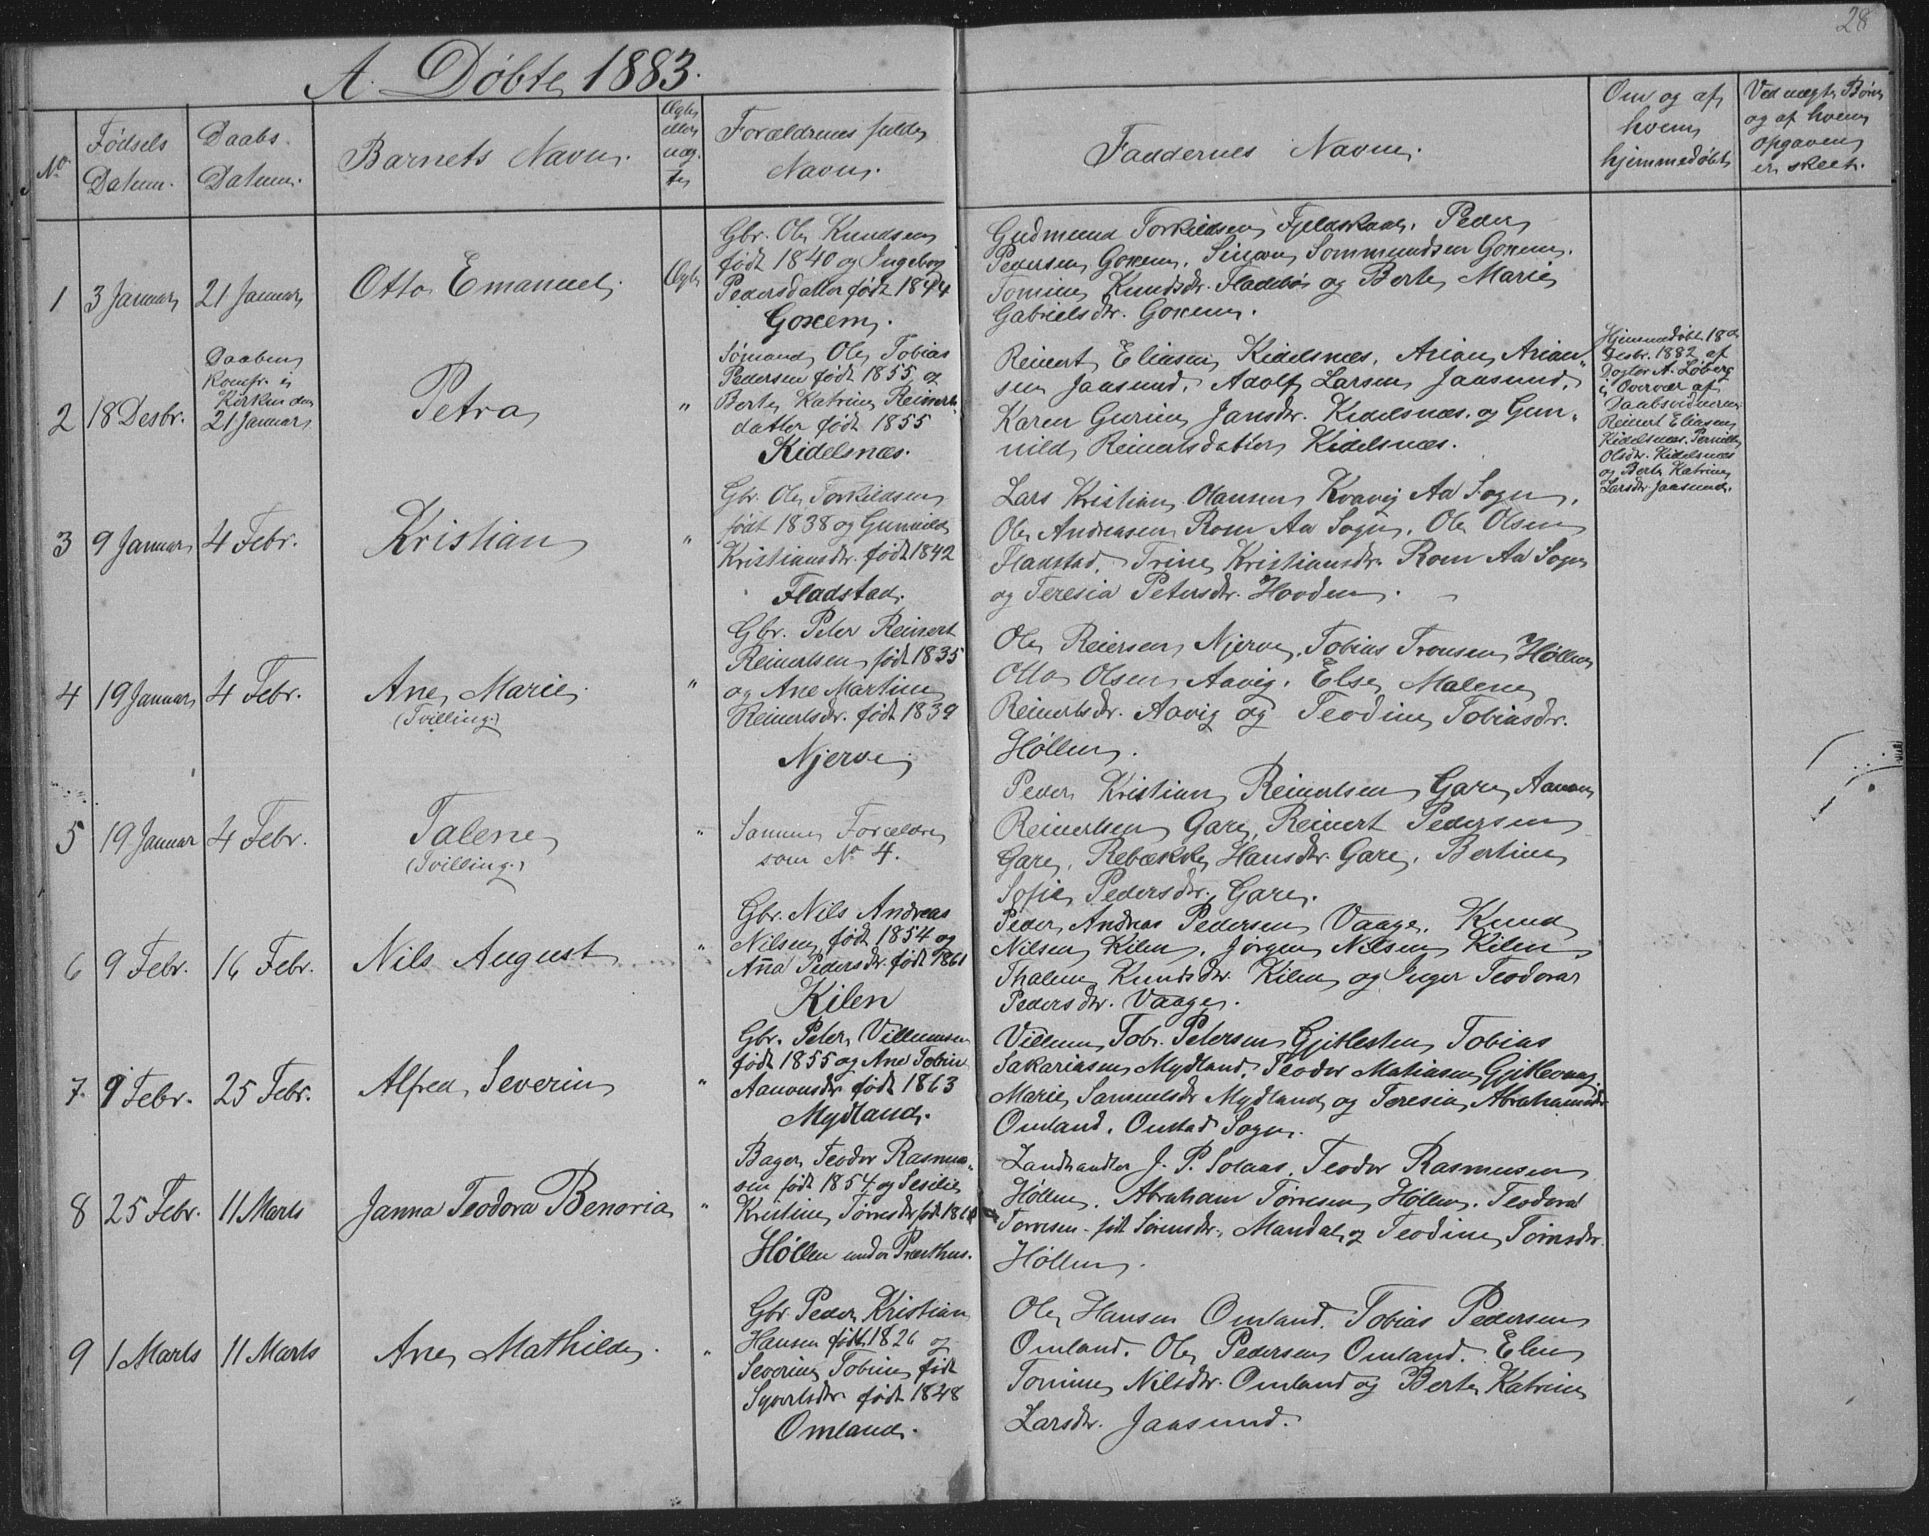 28
A. Døbte 1883.
No
Fødsels
Datum.
Daabs.
Datum.
Barnets Navn.
Ægte
eller
uæg.
te
Forældrenes fulde
Navn.
Faddernes Navne.
Om og af
hvem
hjemmedøbt
Ved uægte Børn
og af hvem
opgaven
er skeet.
1
3 Januar
21 Januar
Otto Emanuel
Ægte
Gbr. Ole Knudsen
født 1840 og Ingeborg
Pedersdatter født 1844
Goxem.
Gudmund Torkildsen Fjeldskaar. Peder
Pedersen Goxem. Sommundsen Goxem.
Tomine Knudsdr. Fladebø og Berte Marie
Gabrielsdr. Goxem.
2
18 Desbr.
Daaben
Komfr. i
Kirken den
21 Januar
Petra
"
Sømand Ole Tobias
Pedersen født 1855 og
Berte Katrine Reinerts
datter født 1855
Kidelsnæs.
Reinert Eliasen Kidelsnæs, Arian Arian"
sen Jaasund. Adolf Larsen Jaasund.
Karen Gurine Jansdr. Kidelsnæs. og Gun"
nild Reinertsdatter Kidelsnæs.
Hjemmedøbt 18de
Desbr. 1882 af
Dogtor A. Løberg
i Overvær af
Daabsvidnerne
Reinert Eliasen
Kidelsnæs. Pernille
Olsdr. Kidelsnæs
og Berte Katrine
Larsdr. Jaasund.
3
9 Januar
4 Febr.
Kristian
"
Gbr. Ole Torkildsen
født 1838 og Gunnild
Kristiansdr. født 1842
Fladstad.
Lars Kristian Olausen Kvavig Aa Sogn.
Ole Andreasen Rom Aa Sogn. Ole Olsen
Flaastad. Trine Kristiansdr. Rom Aa Sogn
og Teresia Petersdr. Hovden.
4
19 Januar
4 Febr.
Ane Marie
(Tvilling.)
"
Gbr. Peter Reinert
Reinertsen født 1835
og Ane Martine
Reinertsdr. født 1839
Njerve
Ole Reiersen Njerve. Tobias Tronsen Høllen
Otto Olsen Aavig. Else Malene
Reinertsdr. Aavig og Teodine Tobiasdr.
Høllen.
5
19 Januar
4 Febr.
Talene
(Tvilling.)
"
Samme Forældre
som No 4.
Peder Kristian Reinertsen Gare, Aanon
Reinertsen Gare, Reinert Pedersen
Gare, Rebække Hansdr. Gare, Bertine
Sofie Pedersdr. Gare.
6
9 Febr.
16 Febr.
Nils August
"
Gbr. Nils Andreas
Nilsen født 1854 og
Anna Pedersdr. født 1861
Kilen
Peder Andreas Pedersen Vaage. Knud
Nilsen Kilen, Jørgen Nilsen Kilen,
Thalene Knudsdr. Kilen og Inger Teodora
Pedersdr. Vaage.
7.
9 Febr.
25 Febr.
Alfred Severin
"
Gbr. Peter Villumsen
født 1855 og Ane Tobine
Aanonsdr. født 1863
Mydland.
Villum Tob. Petersen Gjitlesten Tobias
Sakariasen Mydland, Teodor Matiasen
Marie Samuelsdr Mydland og Teresia Abrahamsdr
Omland. Oustad Sogn.
8
25 Febr.
11 Marts
Janna Teodora Benoria
"
Bager Teodor Rasmus
sen født 1854 og Sesilie
Kristine Tørresdr født
Høllen under Præsthus.
Landhandler J. P. Solaas, Teodor Rasmussen
Høllen, Abraham Tørresen Høllen. Teodora
Tørresen født Sørensdr. Mandal og Teodine Tørresdr.
Høllen.
9
1 Marts
11 Marts
Ane Mathilde
"
Gbr. Peder Kristian
Hansen født 1826 og
Severine Tobine født
Syvertsdr. født 1848
Omland.
Ole Hansen Omland. Tobias Pedersen
Omland. Ole Pedersen Omland. Elen
Tomine Nilsdr. Omland og Berte Katrine
Larsdr. Jaasund.